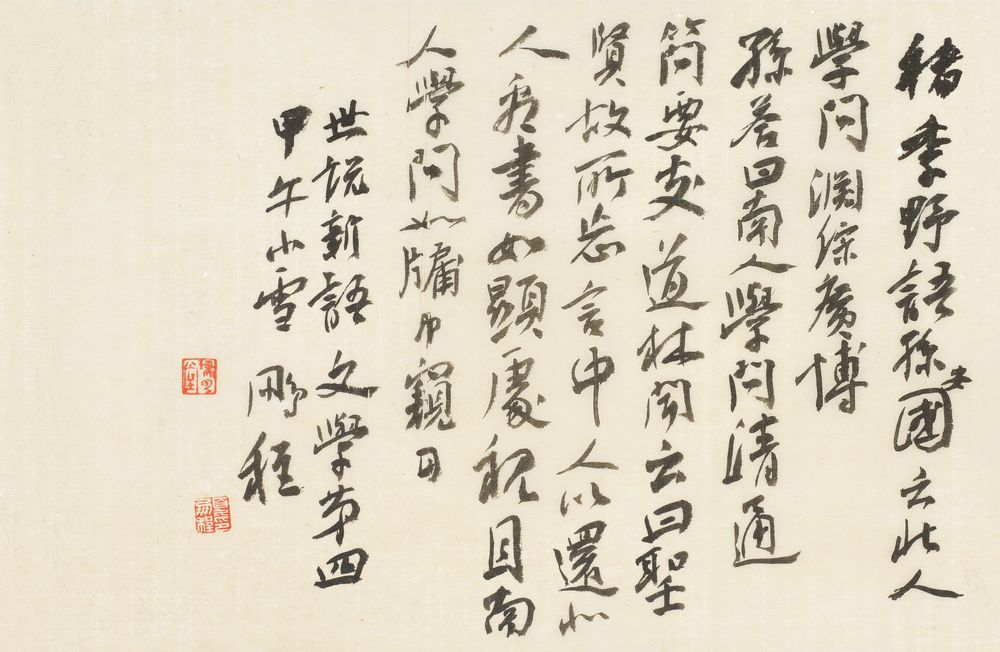 褚季野語孫安國云北人
學問淵綜廣博
孫答曰南人學問清通
簡要支道林聞云曰聖
賢故所忘言中人以還北
人看書如顯處視目南
人學問如牖中窺日
世說新語 文學第四
甲午小雪 鵬程